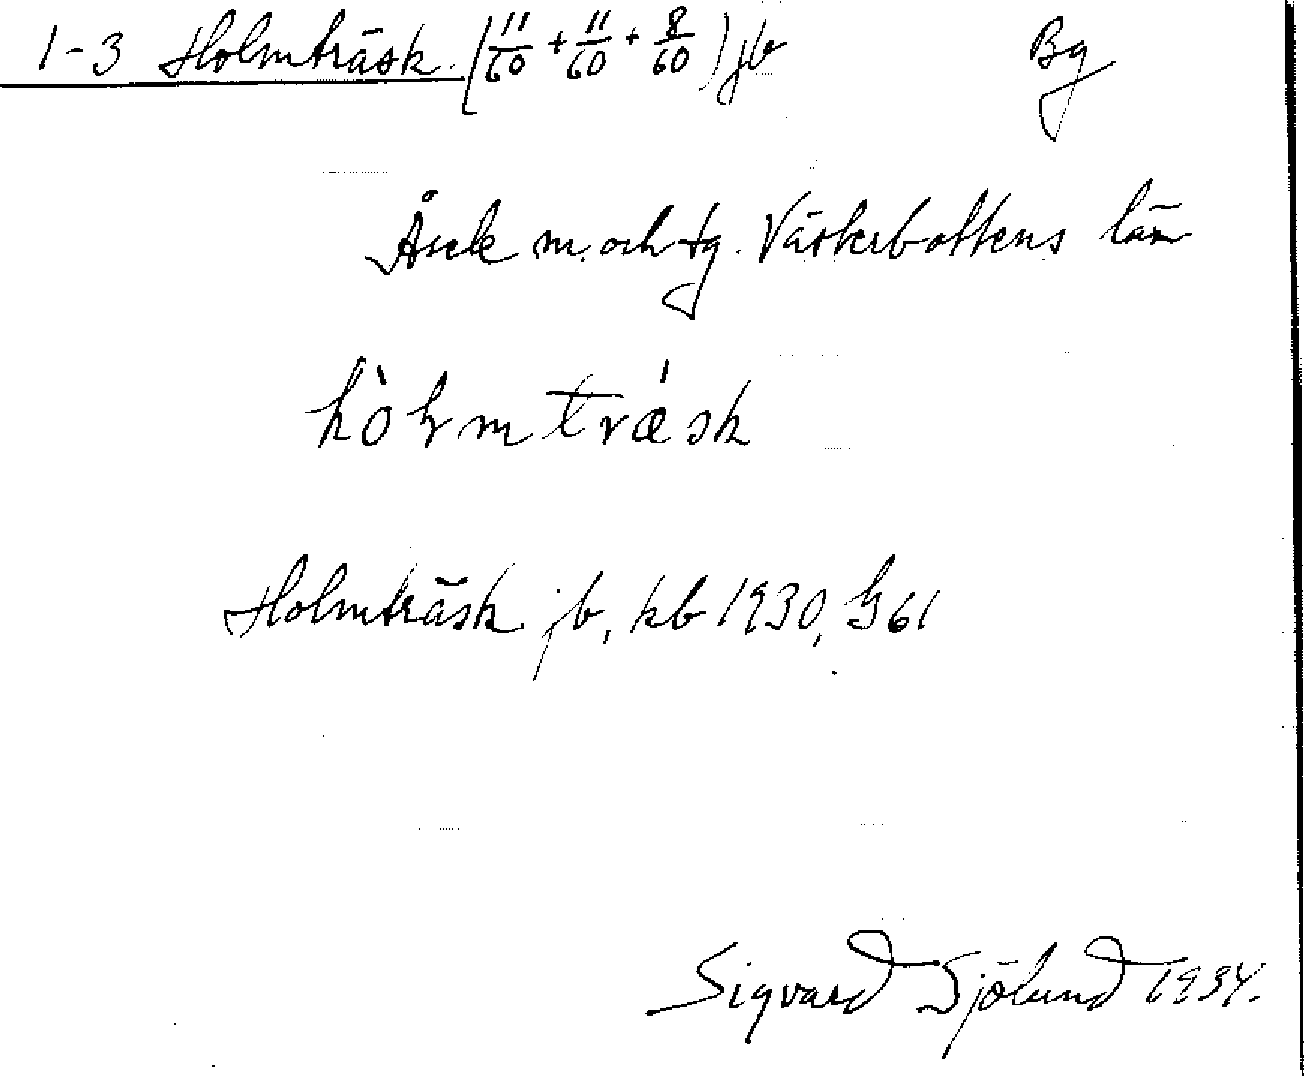 1-3 Holmträsk. (11/60 + 11/60 + 8/60) jb Bg
Åsele m. och tg. Västerbottens län
hòɽmtrǽsk
Holmträsk jb, kb 1930, G61
Sigvard Sjölund 1934.